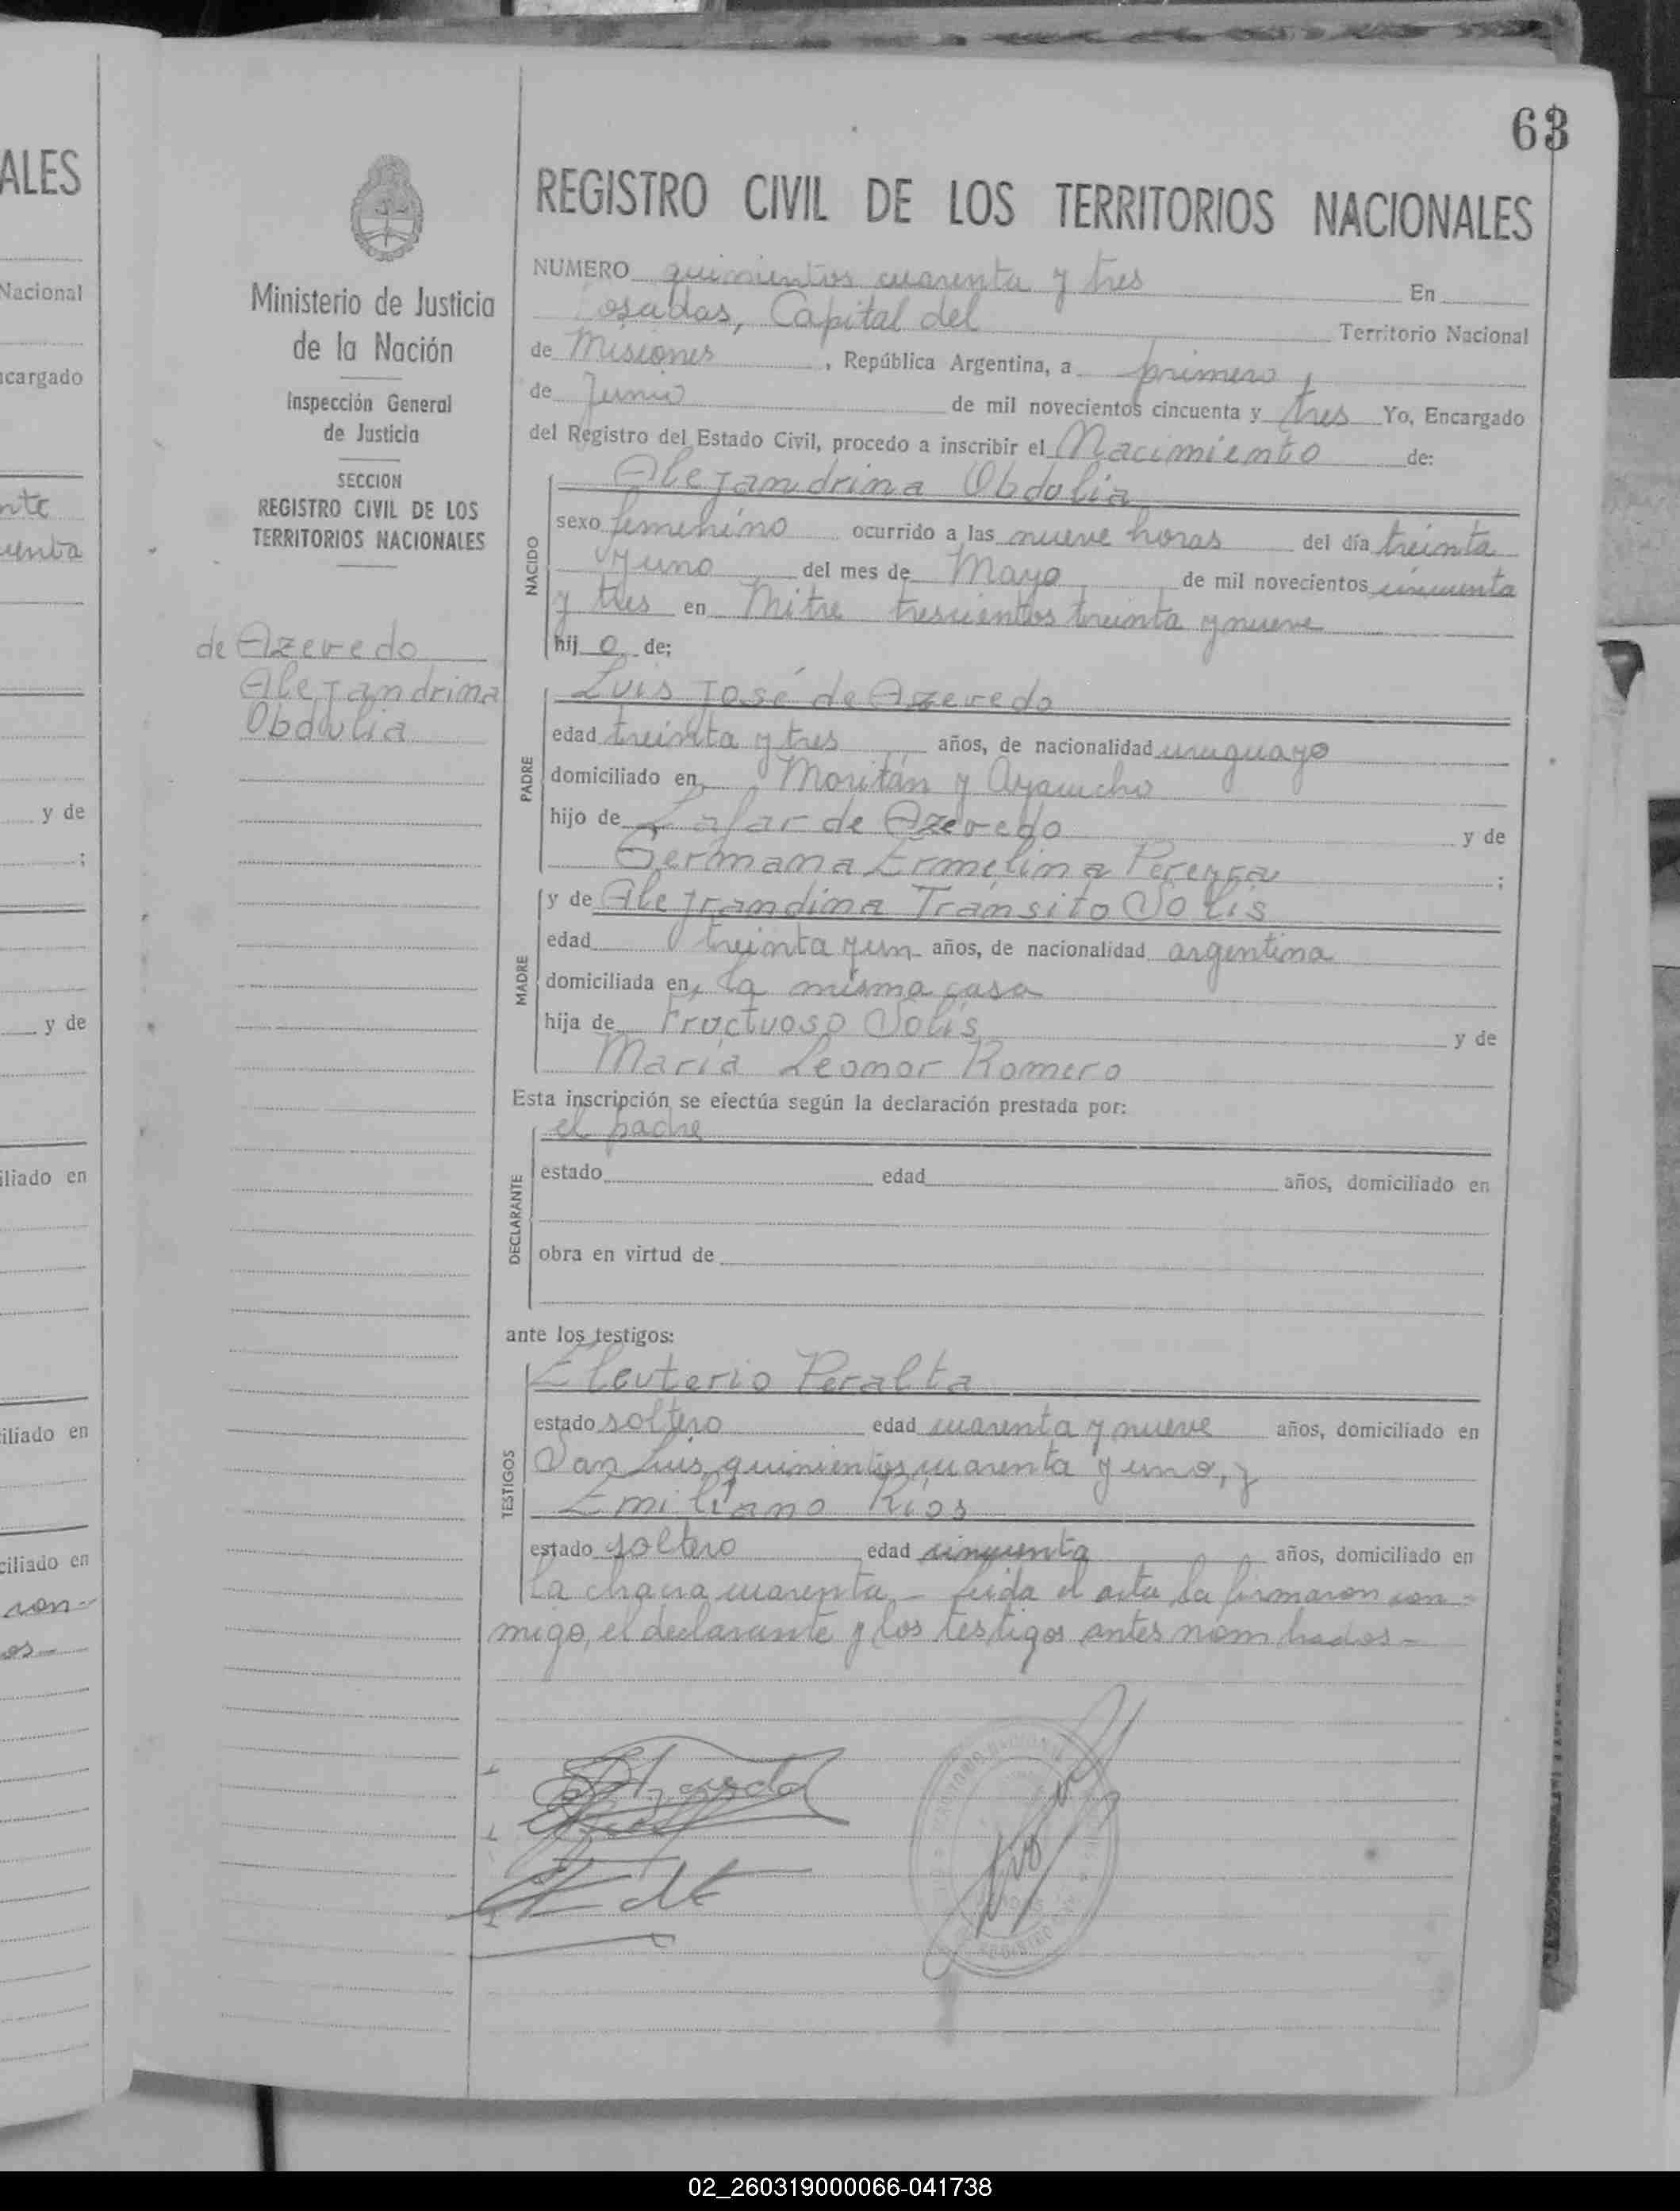 63
ALES
Nacional
cargado
nte
uenta
y de
;
y de
iliado en
iliado en
ciliado en
con-
os-
Ministerio de Justicia
de la Nación
Inspección General
de Justicia
SECCION
REGISTRO CIVIL DE LOS
TERRITORIOS NACIONALES
de Azevedo
Alejandrina
Obdulia
REGISTRO CIVIL DE LOS TERRITORIOS NACIONALES
NUMERO quinientos cuarenta y tres En
Posadas, Capital del Territorio Nacional
de Misiones, República Argentina, a primero
de Junio de mil novecientos cincuenta y tres Yo, Encargado
del Registro del Estado Civil, procedo a inscribir el Nacimiento de:
Alejandrina Obdulia
NACIDO
sexo femenino ocurrido a las nueve horas del día treinta
y uno del mes de Mayo de mil novecientos cincuenta
y tres en Mitre trescientos treinta y nueve
hij o de:
Luis José de Azevedo
PADRE
edad treinta y tres años, de nacionalidad uruguayo
domiciliado en Moritán y Ayacucho
hijo de de Azevedo y de
Germana Ermelina Pereyra ;
y de Tránsito Solis
MADRE
edad treinta y un años, de nacionalidad argentina
domiciliada en la misma casa
hija de Fructuoso Solis y de
María Leonor Romero
Esta inscripción se efectúa según la declaración prestada por:
el padre
DECLARANTE
estado edad años, domiciliado en
obra en virtud de
ante los testigos:
Eleuterio Peralta
TESTIGOS
estado soltero edad cuarenta y nueve años, domiciliado en
San Luis quinientos cuarenta y uno, y
Emiliano Ríos
estado soltero edad cincuenta años, domiciliado en
la chacra cuarenta - Leida el acta la firmaron con-
migo, el declarante y los testigos antes nombrados-
02_260319000066-041738